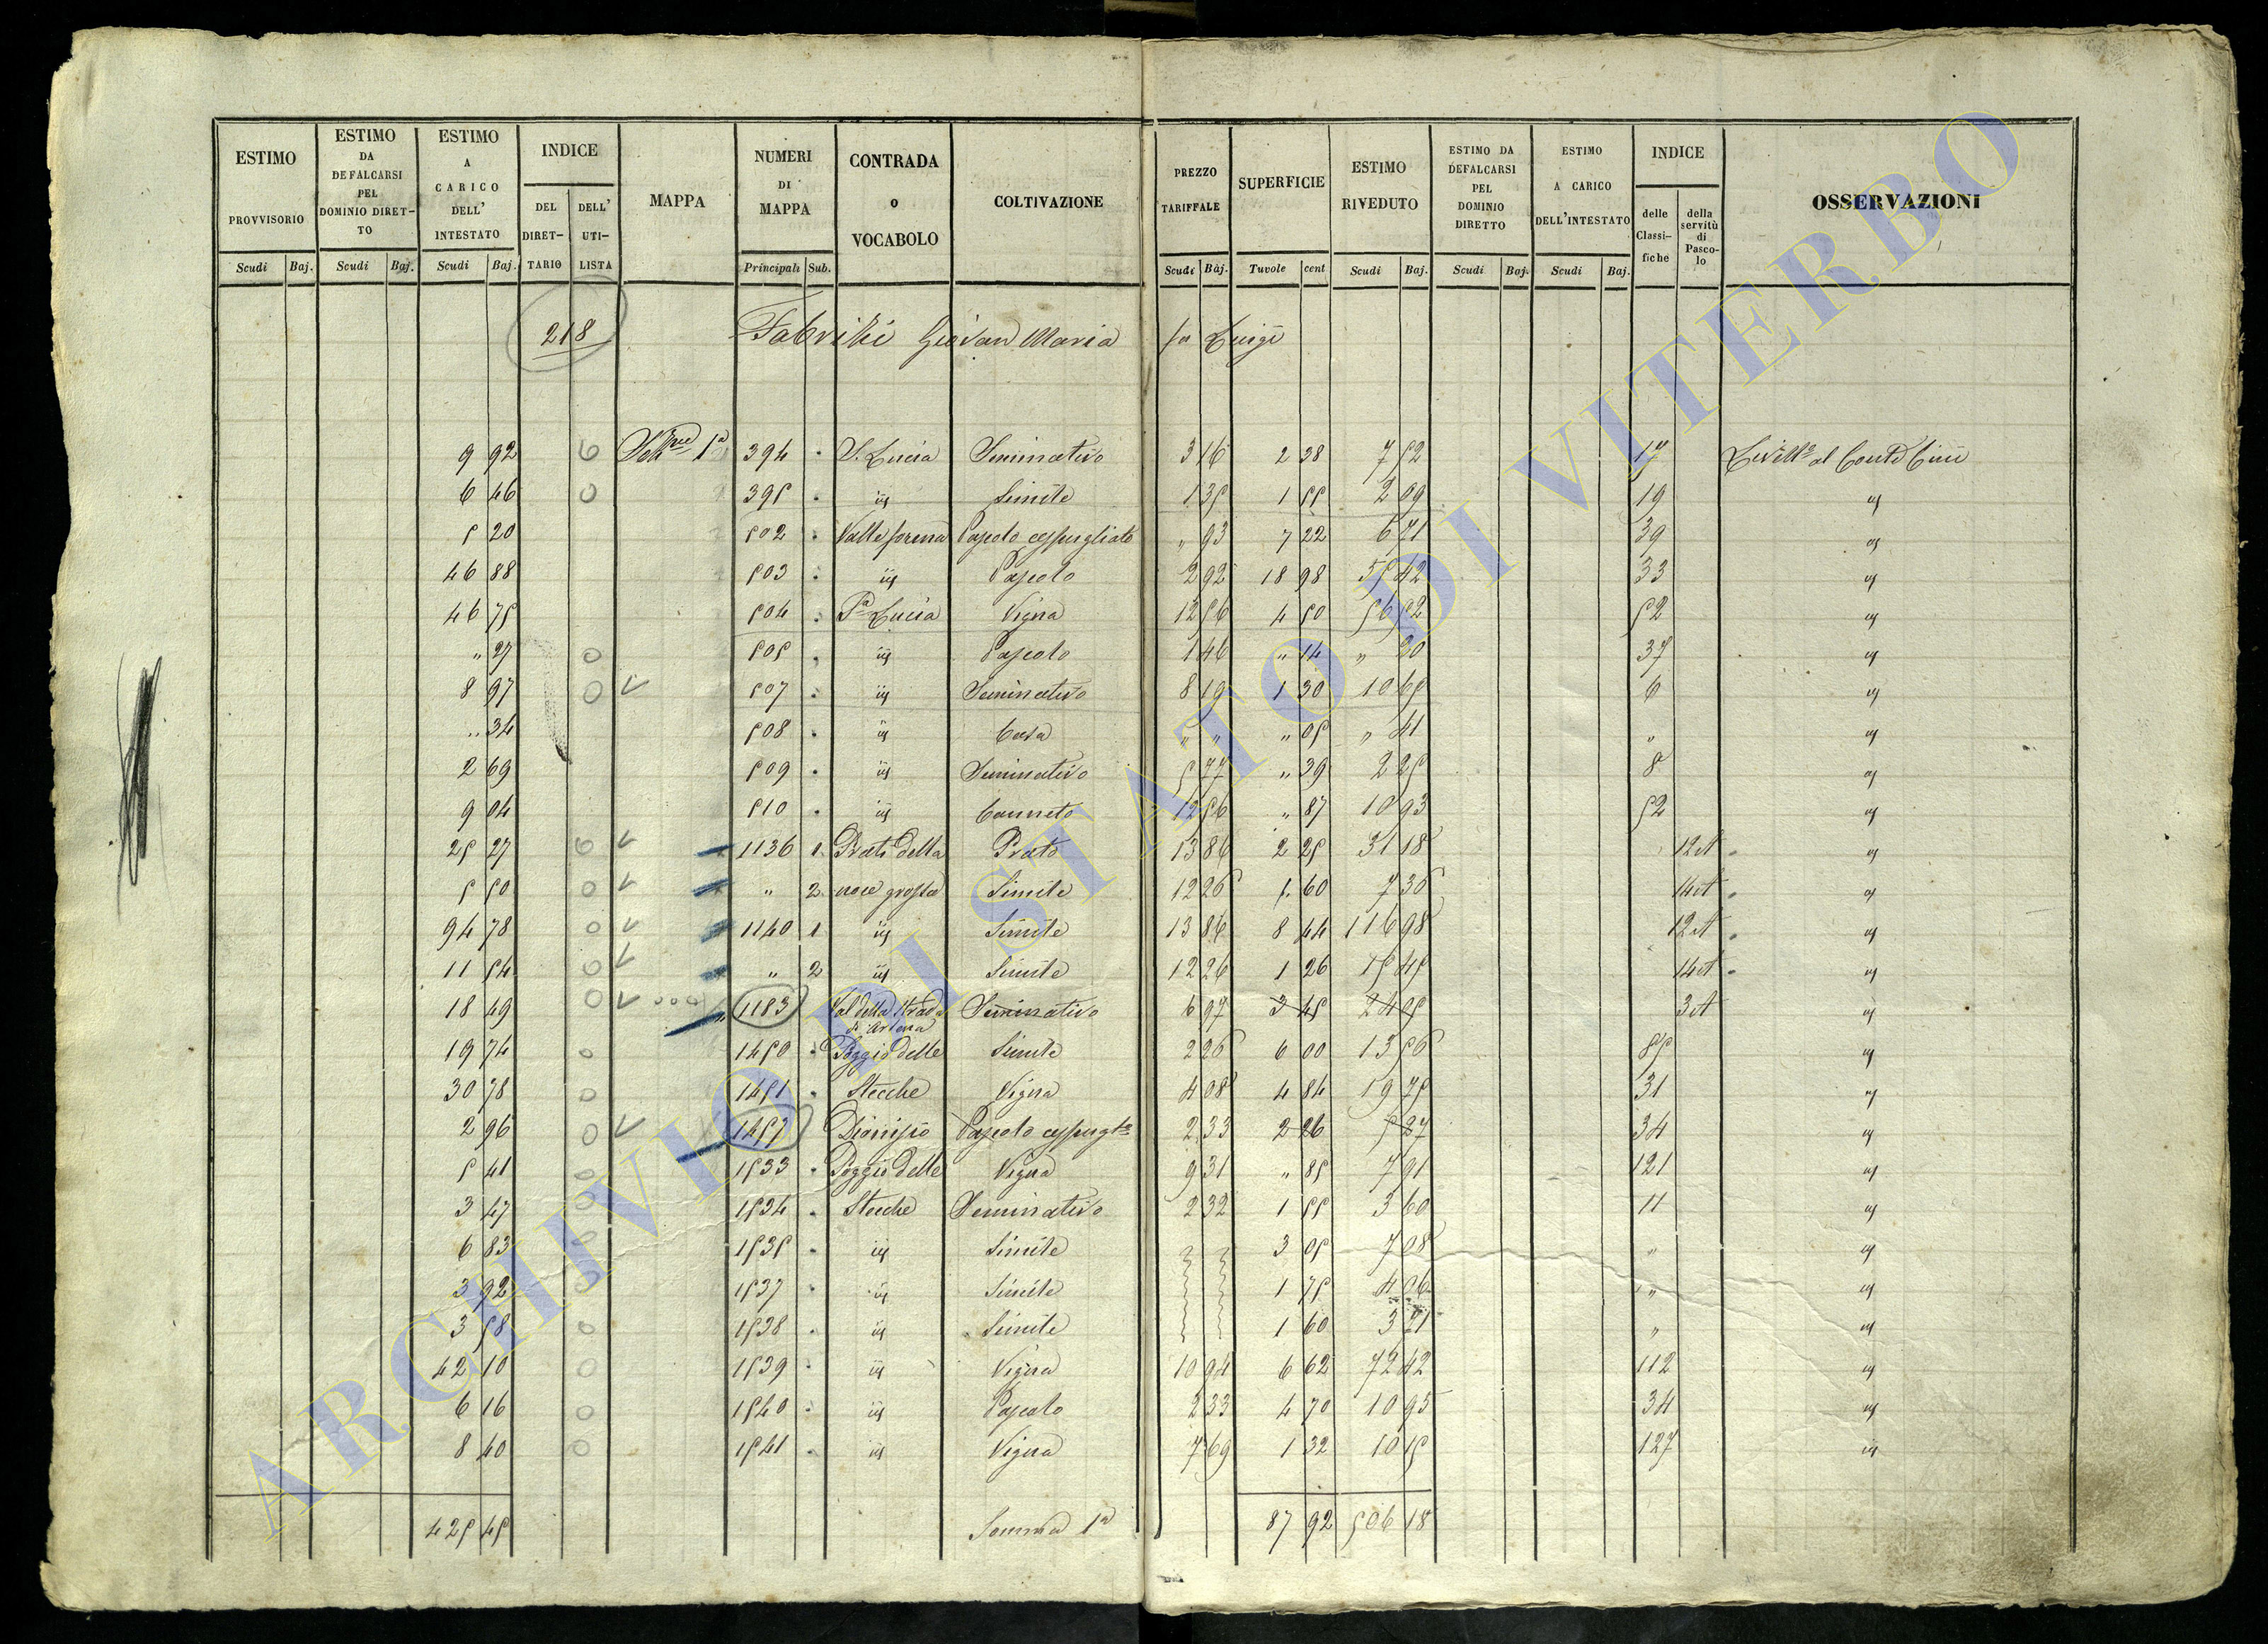 ESTIMO PROVVISORIO Scudi Baj. | ESTIMO DA DEFALCARSI PEL DOMINIO DIRETTO Scudi Baj. | ESTIMO A CARICO DELL' INTESTATO Scudi Baj. | INDICE DEL DIRETTARIO DELL' UTILISTA | MAPPA | NUMERI DI MAPPA Principali Sub. | CONTRADA O VOCABOLO | COLTIVAZIONE | PREZZO TARIFFALE Scudi Baj. | SUPERFICIE Tavole cent | ESTIMO RIVEDUTO Scudi Baj. | ESTIMO DA DEFALCARSI PEL DOMINIO DIRETTO Scudi Baj. | ESTIMO A CARICO DELL'INTESTATO Scudi Baj. | INDICE delle Classifiche della servitù di Pascolo | OSSERVAZIONI
218 Giovan Maria fu Luigi
9 92 1a 394 S. Lucia Seminativo 3 16 2 38 7 52 17
6 46 395 iij Simile 1 35 1 55 2 09 19 iij
5 20 502 Pascolo cespugliato " 93 7 22 6 71 39 iij
46 88 503 iij Pascolo 2 92 18 98 55 42 33 iij
46 75 504 Sa Lucia Vigna 12 56 4 50 56 52 52 iij
" 27 505 iij Pascolo 1 46 " 14 " 20 37 iij
8 97 507 iij Seminativo 8 19 1 30 10 65 6 iij
" 34 508 iij Casa " " " 05 " 41 " iij
2 69 509 iij Seminativo 5 77 " 39 2 25 8 iij
9 04 510 iij Canneto 12 56 " 87 10 93 52 iij
25 27 1136 1 Prati della Prato 13 86 2 25 31 18 12 A iij
5 50 " 2 noce grossa Simile 12 26 " 60 7 36 14 A iij
94 78 1140 1 iij Simile 13 86 8 44 116 98 12 A iij
11 54 " 2 iij Simile 12 26 1 26 15 45 14 A iij
18 49 1183 Val della Strada Seminativo 6 97 3 45 24 05 3 A iij
19 74 1450 Poggio delle Simile 2 26 6 00 13 56 iij
30 78 1451 Stecche Vigna 4 08 4 84 19 75 31 iij
2 96 1457 Dionisio Pascolo cespugto 2 33 2 26 5 27 34 iij
5 41 1533 Poggio delle Vigna 9 31 " 85 7 91 121 iij
3 47 1534 Stecche Seminativo 2 32 1 55 3 60 11 iij
6 83 1535 iij Simile 3 05 7 08 " iij
3 92 1537 iij Simile 1 75 4 06 " iij
3 58 1538 iij Simile 1 60 3 71 " iij
42 10 1539 iij Vigna 10 94 6 62 72 42 112 iij
6 16 1540 iij Pascolo 2 33 4 70 10 95 34 iij
8 40 1541 iij Vigna 7 69 1 32 10 15 127 iij
425 45 Somma 1a 87 92 506 18
ARCHIVIO DI STATO DI VITERBO